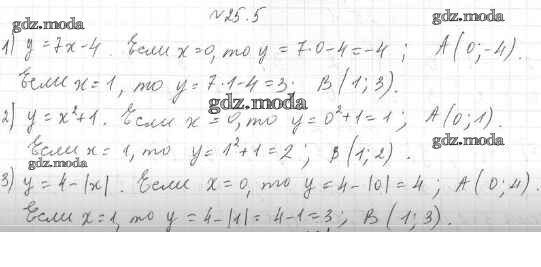 №25.5
gdz.moda gdz.moda
1) y = 7x-4. Если x=0, то y = 7·0-4=-4; A(0;-4).
Если x=1, то y=7·1-4=3; B(1;3).
gdz.moda
2) y = x²+1. Если x = 0, то y=0²+1=1; A(0;1).
gdz.moda
Если x=1, то y=1²+1=2; B(1;2).
gdz.moda
3) y = 4-|x|. Если x=0, то y=4-|0|=4; A(0;4).
Если x=1, то y=4-|1|=4-1=3; B(1;3).